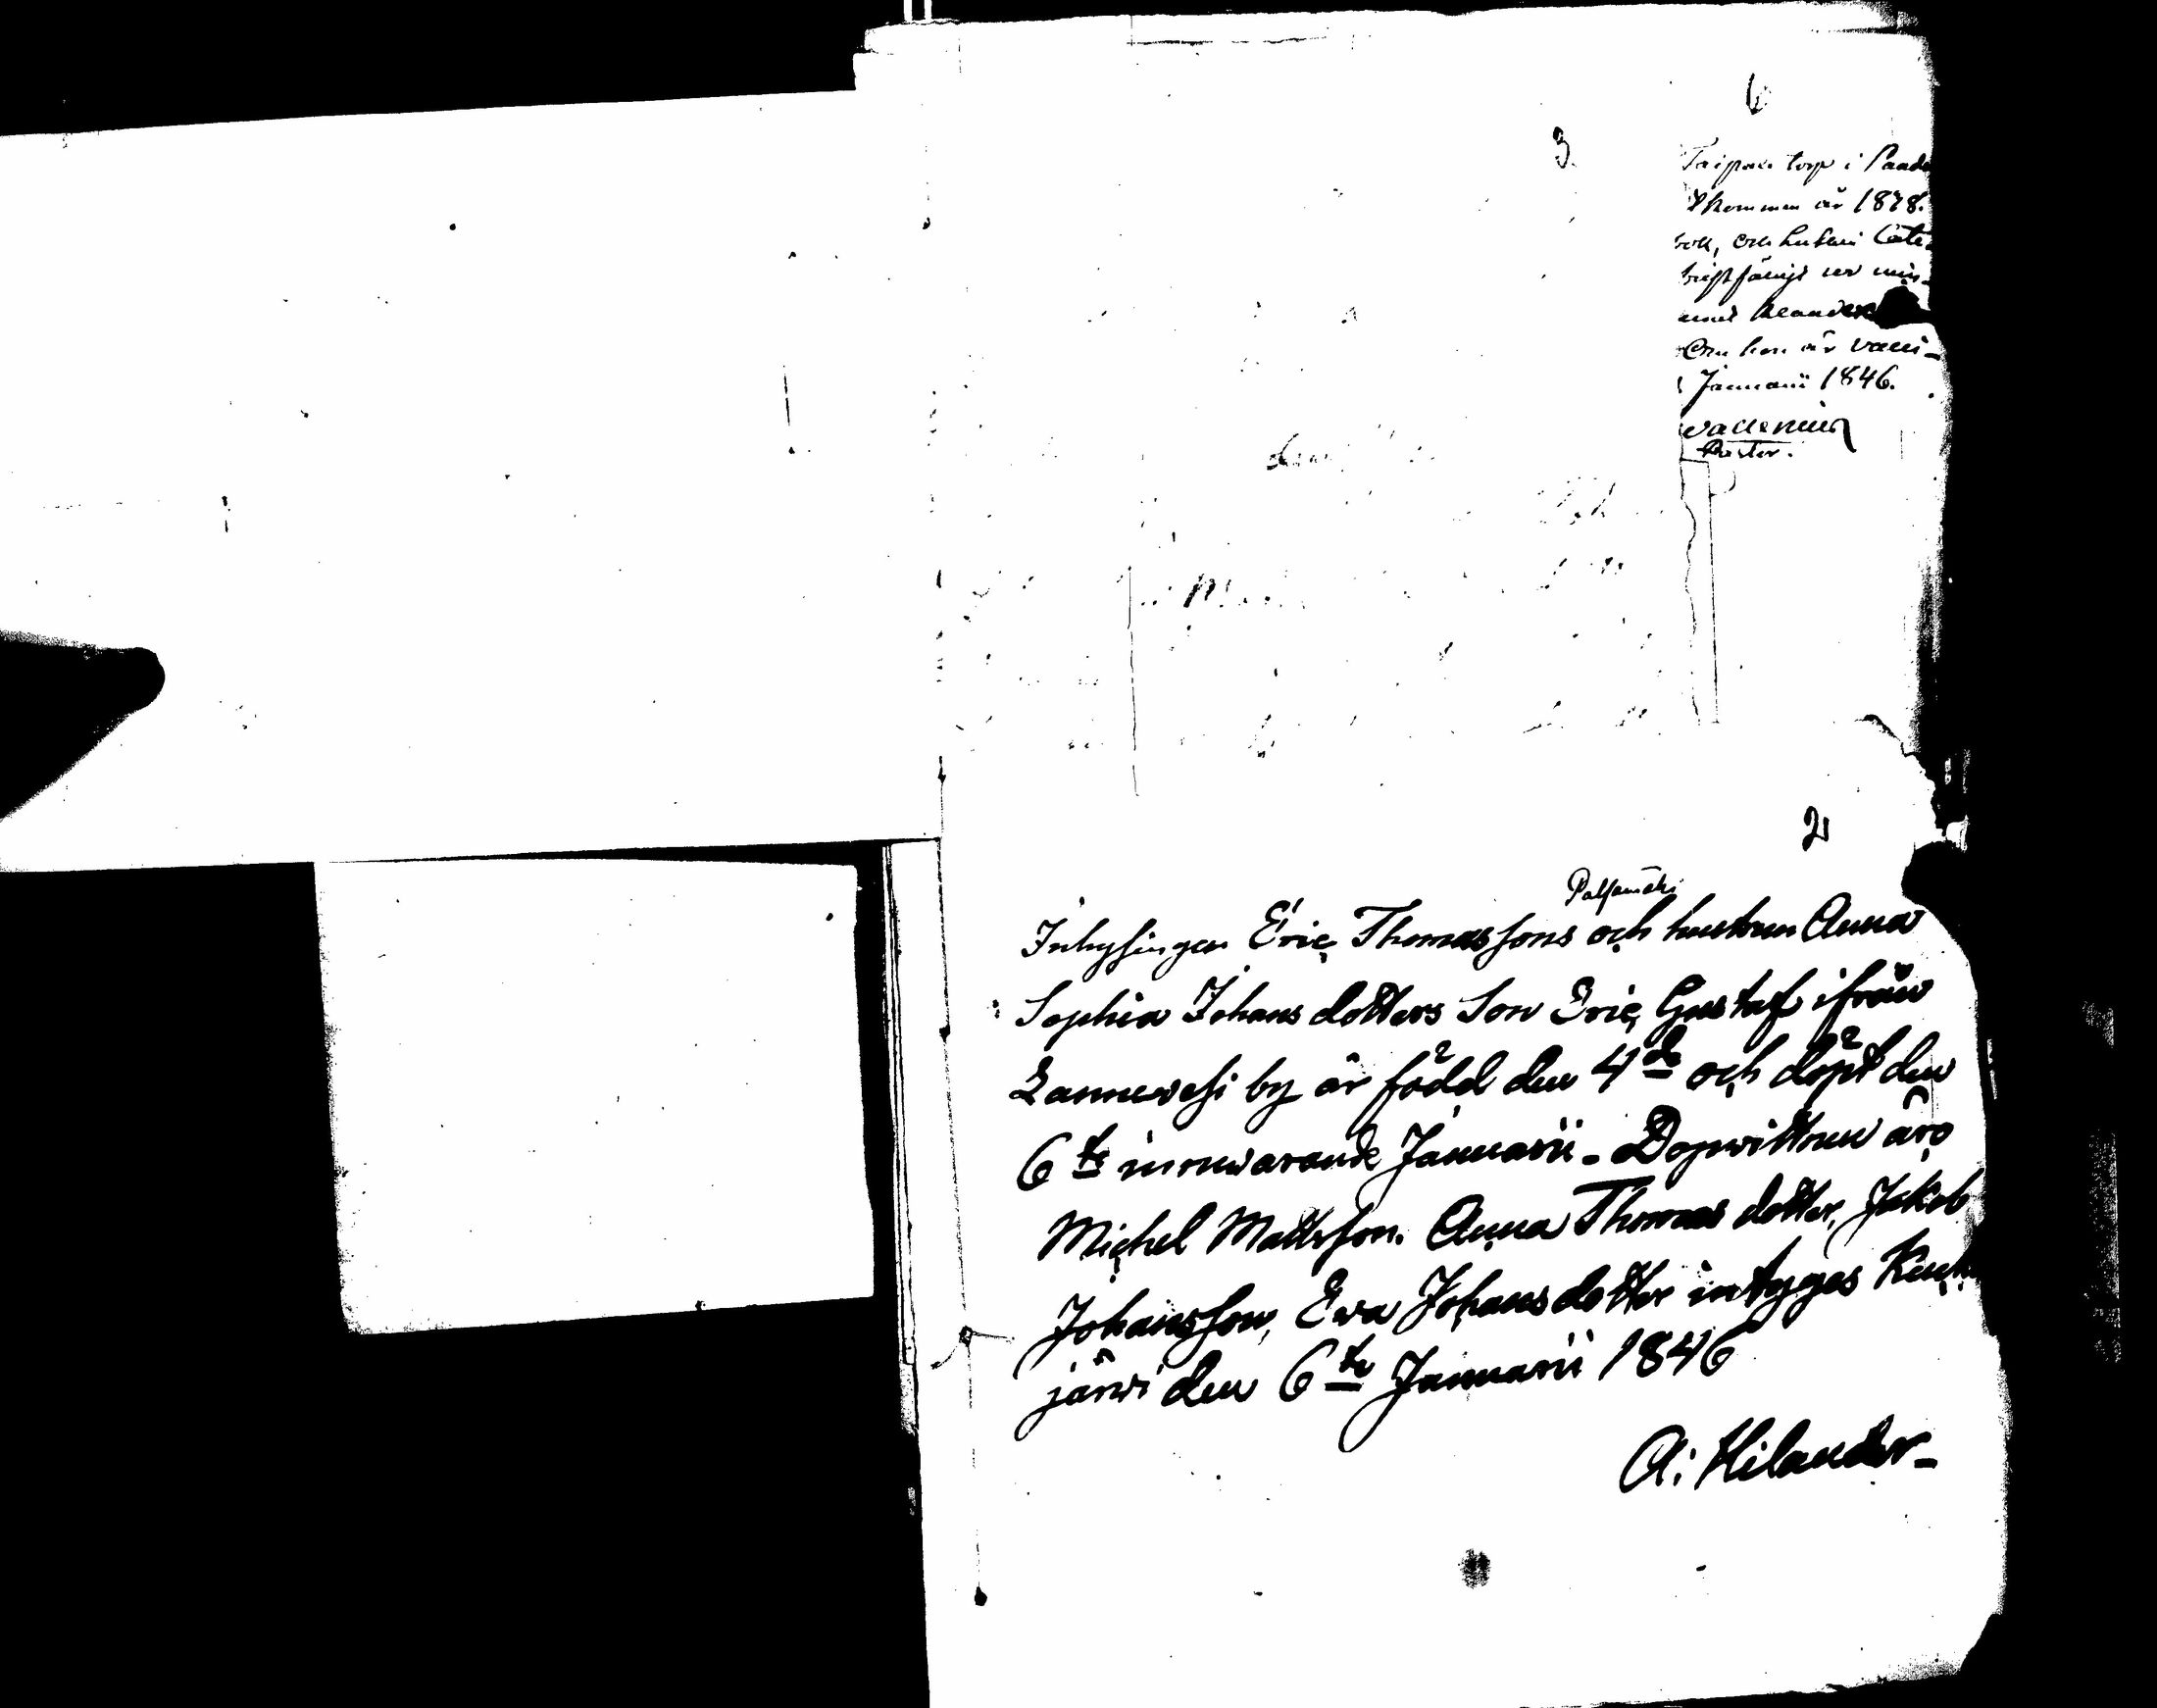 6
3
torp i Paado
kommen år 1878.
och
Om hon är
Januarii 1846.
Pastor.
2
Palsamäki
Inhysingen Eric Thomassons och hustrun Anna
Sophia Johansdotters Son Eric Gustaf ifrån
Lannevesi by är född den 4de och döpt den
6te innewarande Januarii - Dopvittnen äro
Michel Mattsson. Anna Thomasdotter, Jakob
Johansson, Eva Johansdotter intygas
järvi den 6te Januarii 1846
A: Hilander-